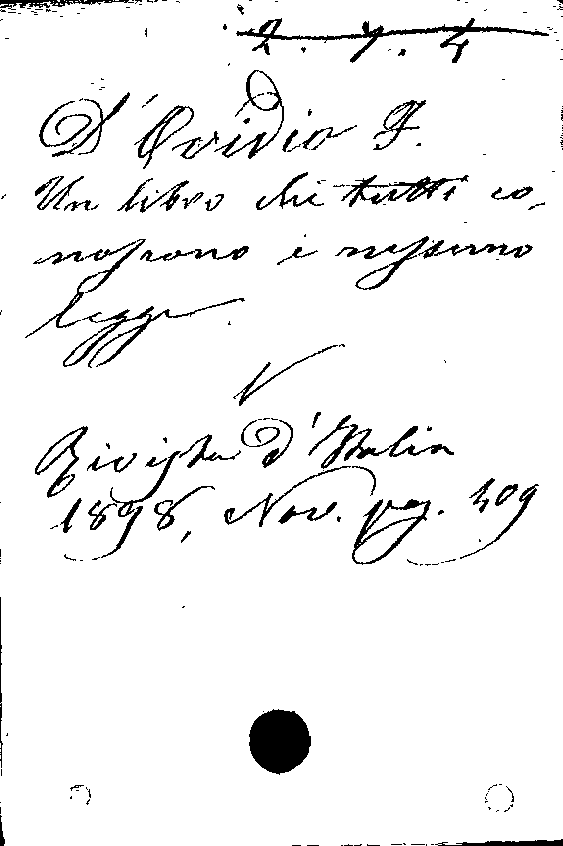 2. 7. 4
D'Ovidio F.
Un libro che tutti co-
noscono e nessuno
legge.
V
Rivista d'Italia
1898, Nov. pag. 409